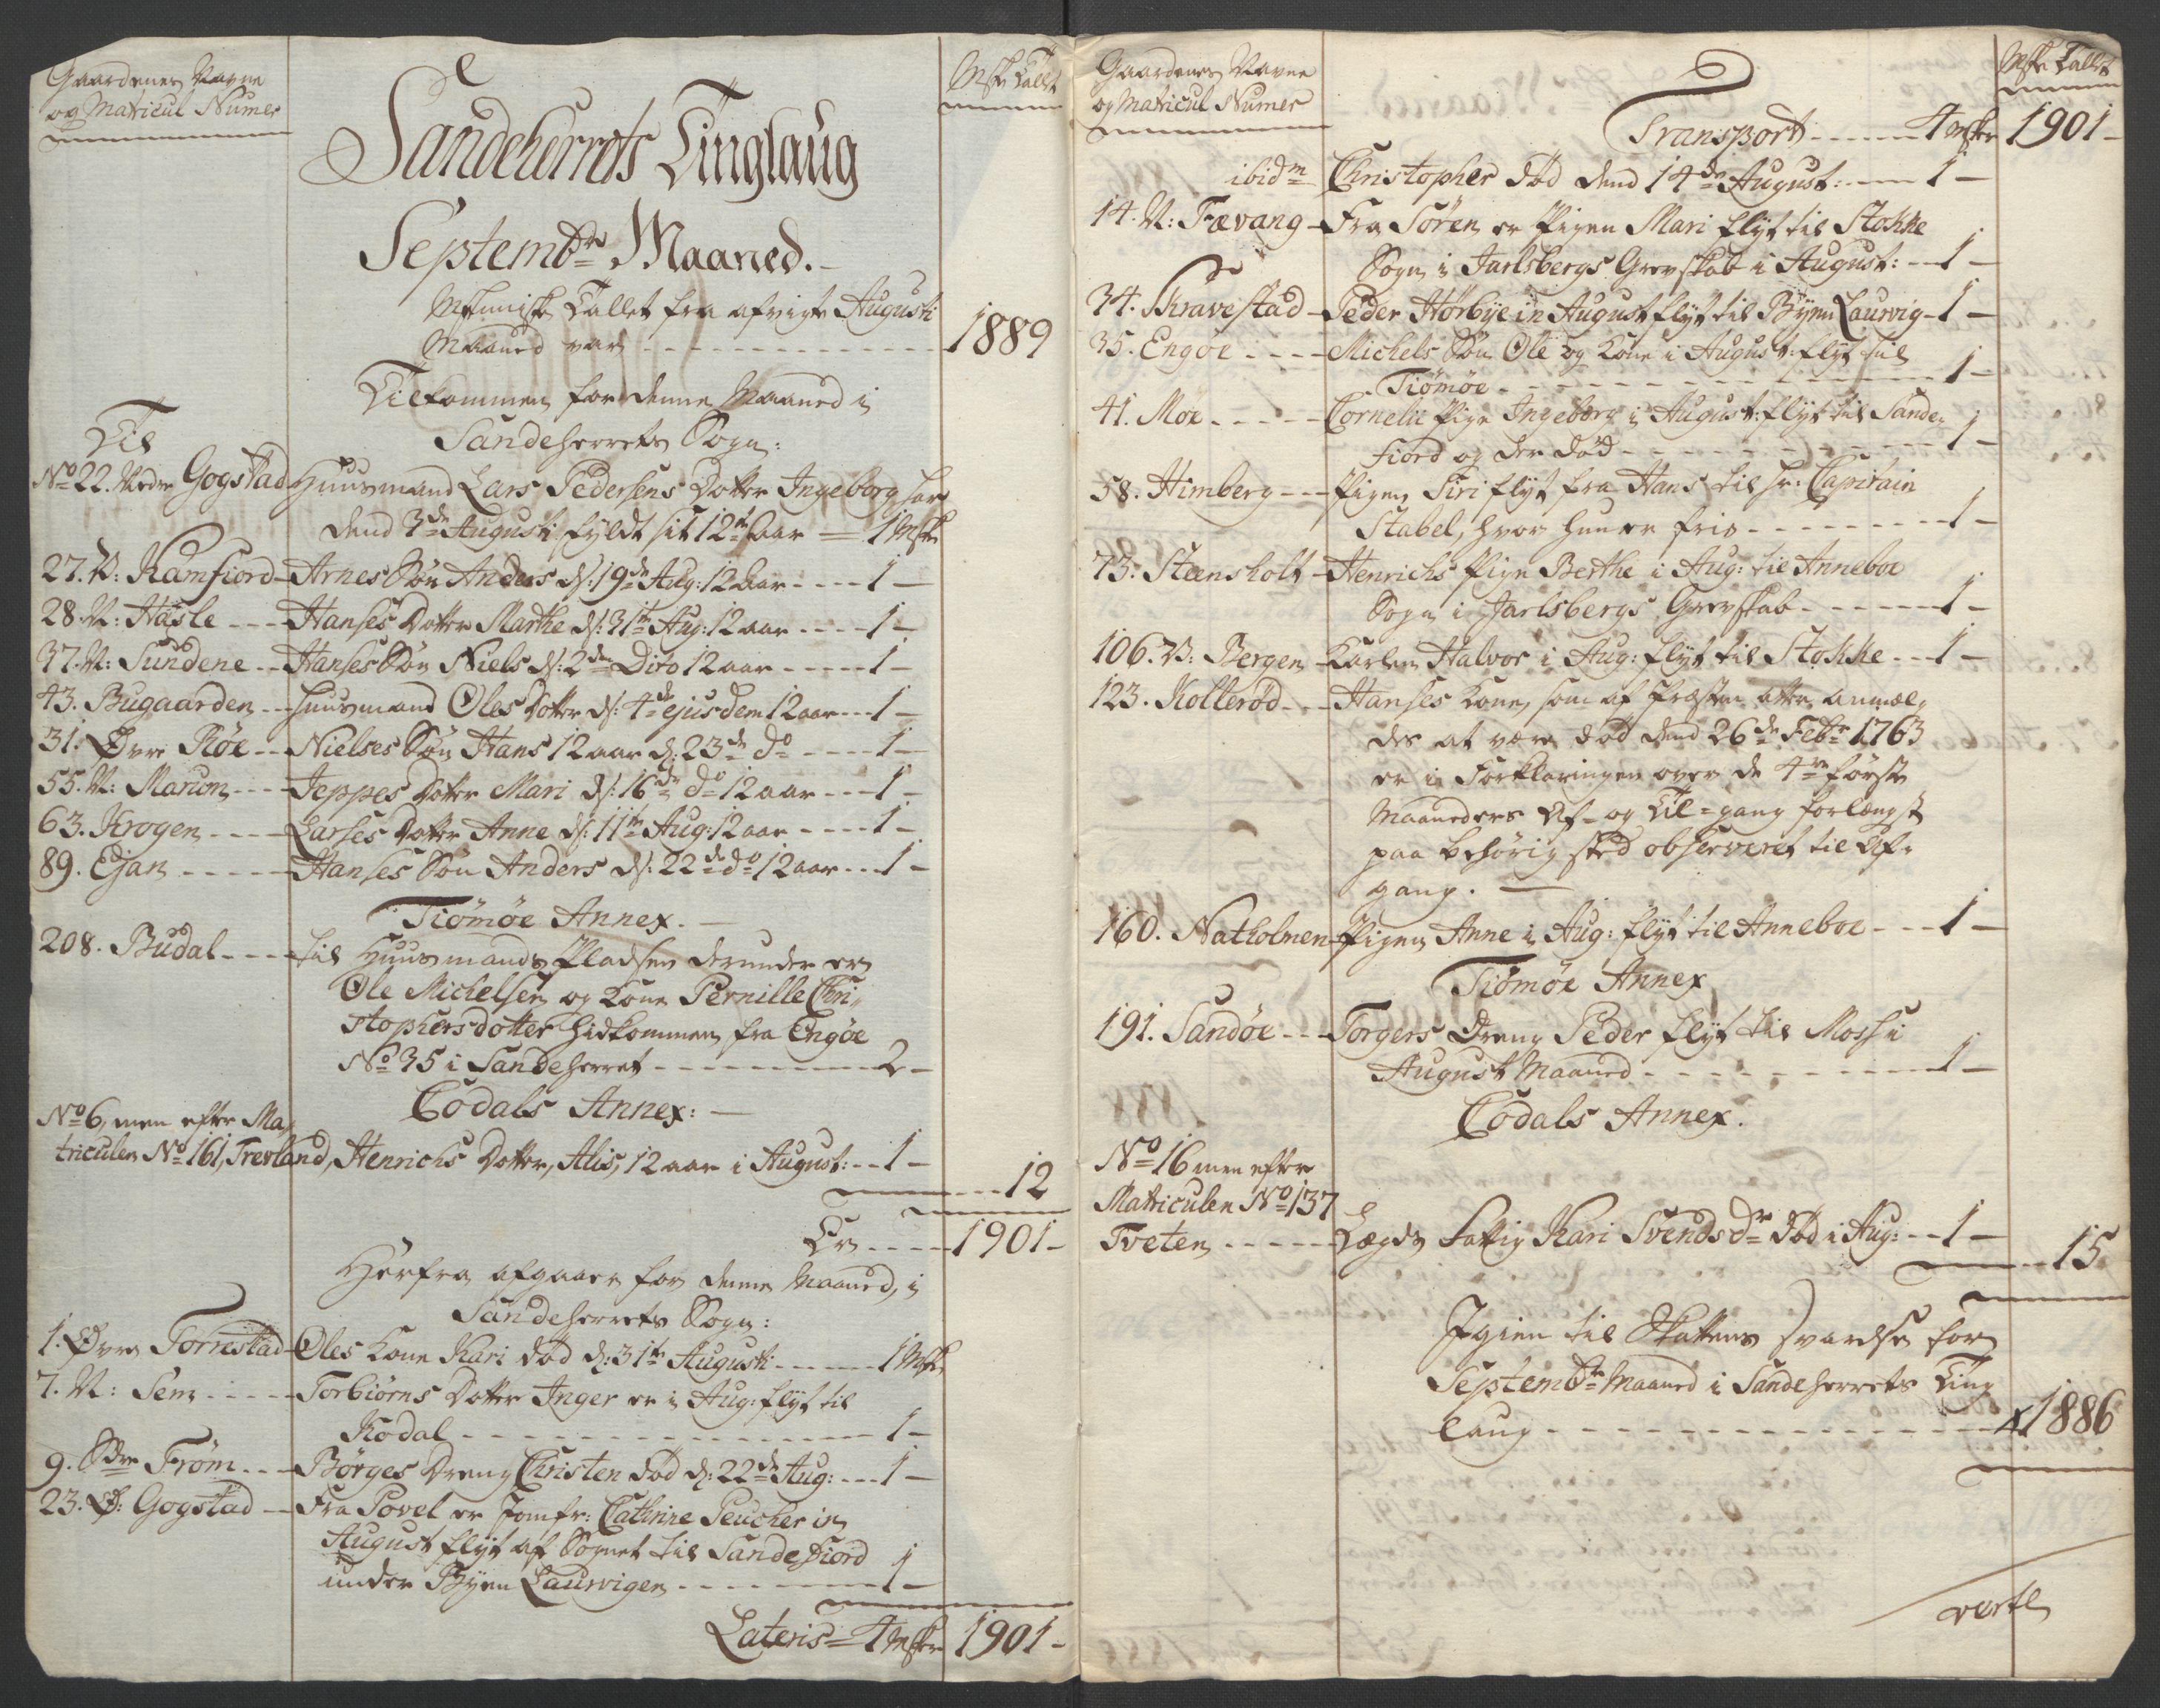 Gaardenes Navne
og Matricul Numer
Mske Tallet
Sandeherrets Tinglaug
Septembr Maaned.
Menniske Tallet fra afvigte Augusti
Maaned var 1889
Tilkommen for denne Maaned i
Sandeherrets Sogn:
Til
No 22. Nedre Gogstad Huusmand Lars Pedersens Dotter Ingeborg har
dend 3de Augusti fyldt sit 12te Aar 1 Mske
27. V: Kamfiord Arnes Søn Anders d: 19de Aug: 12 aar 1
28. N: Hasle Hanses Dotter Marthe d: 31te Aug: 12 aar 1
37. N: Sundene Hanses Søn Niels d: 2den Dito 12 aar 1
43. Bugaarden Huusmand Oles Dotter d: 4de ejusdem 12 aar 1
31. Øvre Røe Nielses Søn Hans 12 aar d: 23de do 1
55. N: Marum Jeppes Dotter Mari d: 16de do 12 aar 1
63. Krogen Larses Dotter Anne d: 11te Aug: 12 aar 1
89. Ejan Hanses Søn Anders d: 22de do 12 aar 1
Tiømøe Annex.
208. Budal til Huusmands Pladsen derunder er
Ole Michelsen og Kone Pernille Chri-
stophersdotter hidkommen fra Engøe
No 35 i Sandeherret 2
Codals Annex:
No 6, men efter Ma-
triculen No 161, Trevland, Henrichs Dotter, Alis, 12 aar i August: 1
12
Er 1901
Herfra afgaaer for denne Maaned, i
Sandeherrets Sogn:
1. Øvre Tornstad Oles Kone Kari død d: 31te Augusti 1 Mske
7. N: Sem Torbiørns Dotter Inger er i Aug: flyt til
Kodal 1
9. Sdre Frøm Børges Dreng Christen død d: 22de Aug: 1
23. Ø: Gogstad Fra Povel er Jomfr: Cathrine Peucher in
August flyt af Sognet til Sandefiord
under Byen Laurvigen 1
Lateris 4 Mske 1901
Gaardenes Navne
og Matricul Numer
Mske Tallet
Transport 4 Mske 1901
ibidm Christopher død dend 14de August: 1
14. N: Fævang Fra Søren er Pigen Mari flyt til Stokke
Sogn i Jarlsbergs Grevskab i August: 1
34. Skravestad Peder Hørbye in August flyt til Byen Laurvig 1
35. Engøe Michels Søn Ole og Kone i August: flyt til
Tiømøe 1
41. Moe Cornelii Pige Ingeborg i August: flyt til Sande-
fiord og der død 1
58. Himberg Pigen Siri flyt fra Hans til Hr: Capitain
Stabel, hvor hun er frie 1
73. Steensholt Henrichs Pige Berthe i Aug: til Anneboe
Sogn i Jarlsbergs Grevskab 1
106. V: Bergen Karlen Halvor i Aug: flyt til Stokke 1
123. Kollerød Hanses Kone, som af Præsten atter anmæl-
des at være død dend 26de Febr 1763
er i Forklaringen over de 4re første
Maaneders Af- og Til-gang forlængst
paa behørig sted observeret til Af-
gang.
160. Natholmen Pigen Anne i Aug: flyt til Anneboe 1
Tiømøe Annex
191. Sandøe Torgers Dreng Peder flyt til Moss i
August Maaned 1
Codals Annex.
No 16 men efter
Matriculen No 137
Tveten Lægds Fattig Kari Svends dr død i Aug: 1
15
Igien til Skattens svarelse for
Septembr Maaned i Sandeherrets Ting-
laug 1886
verte